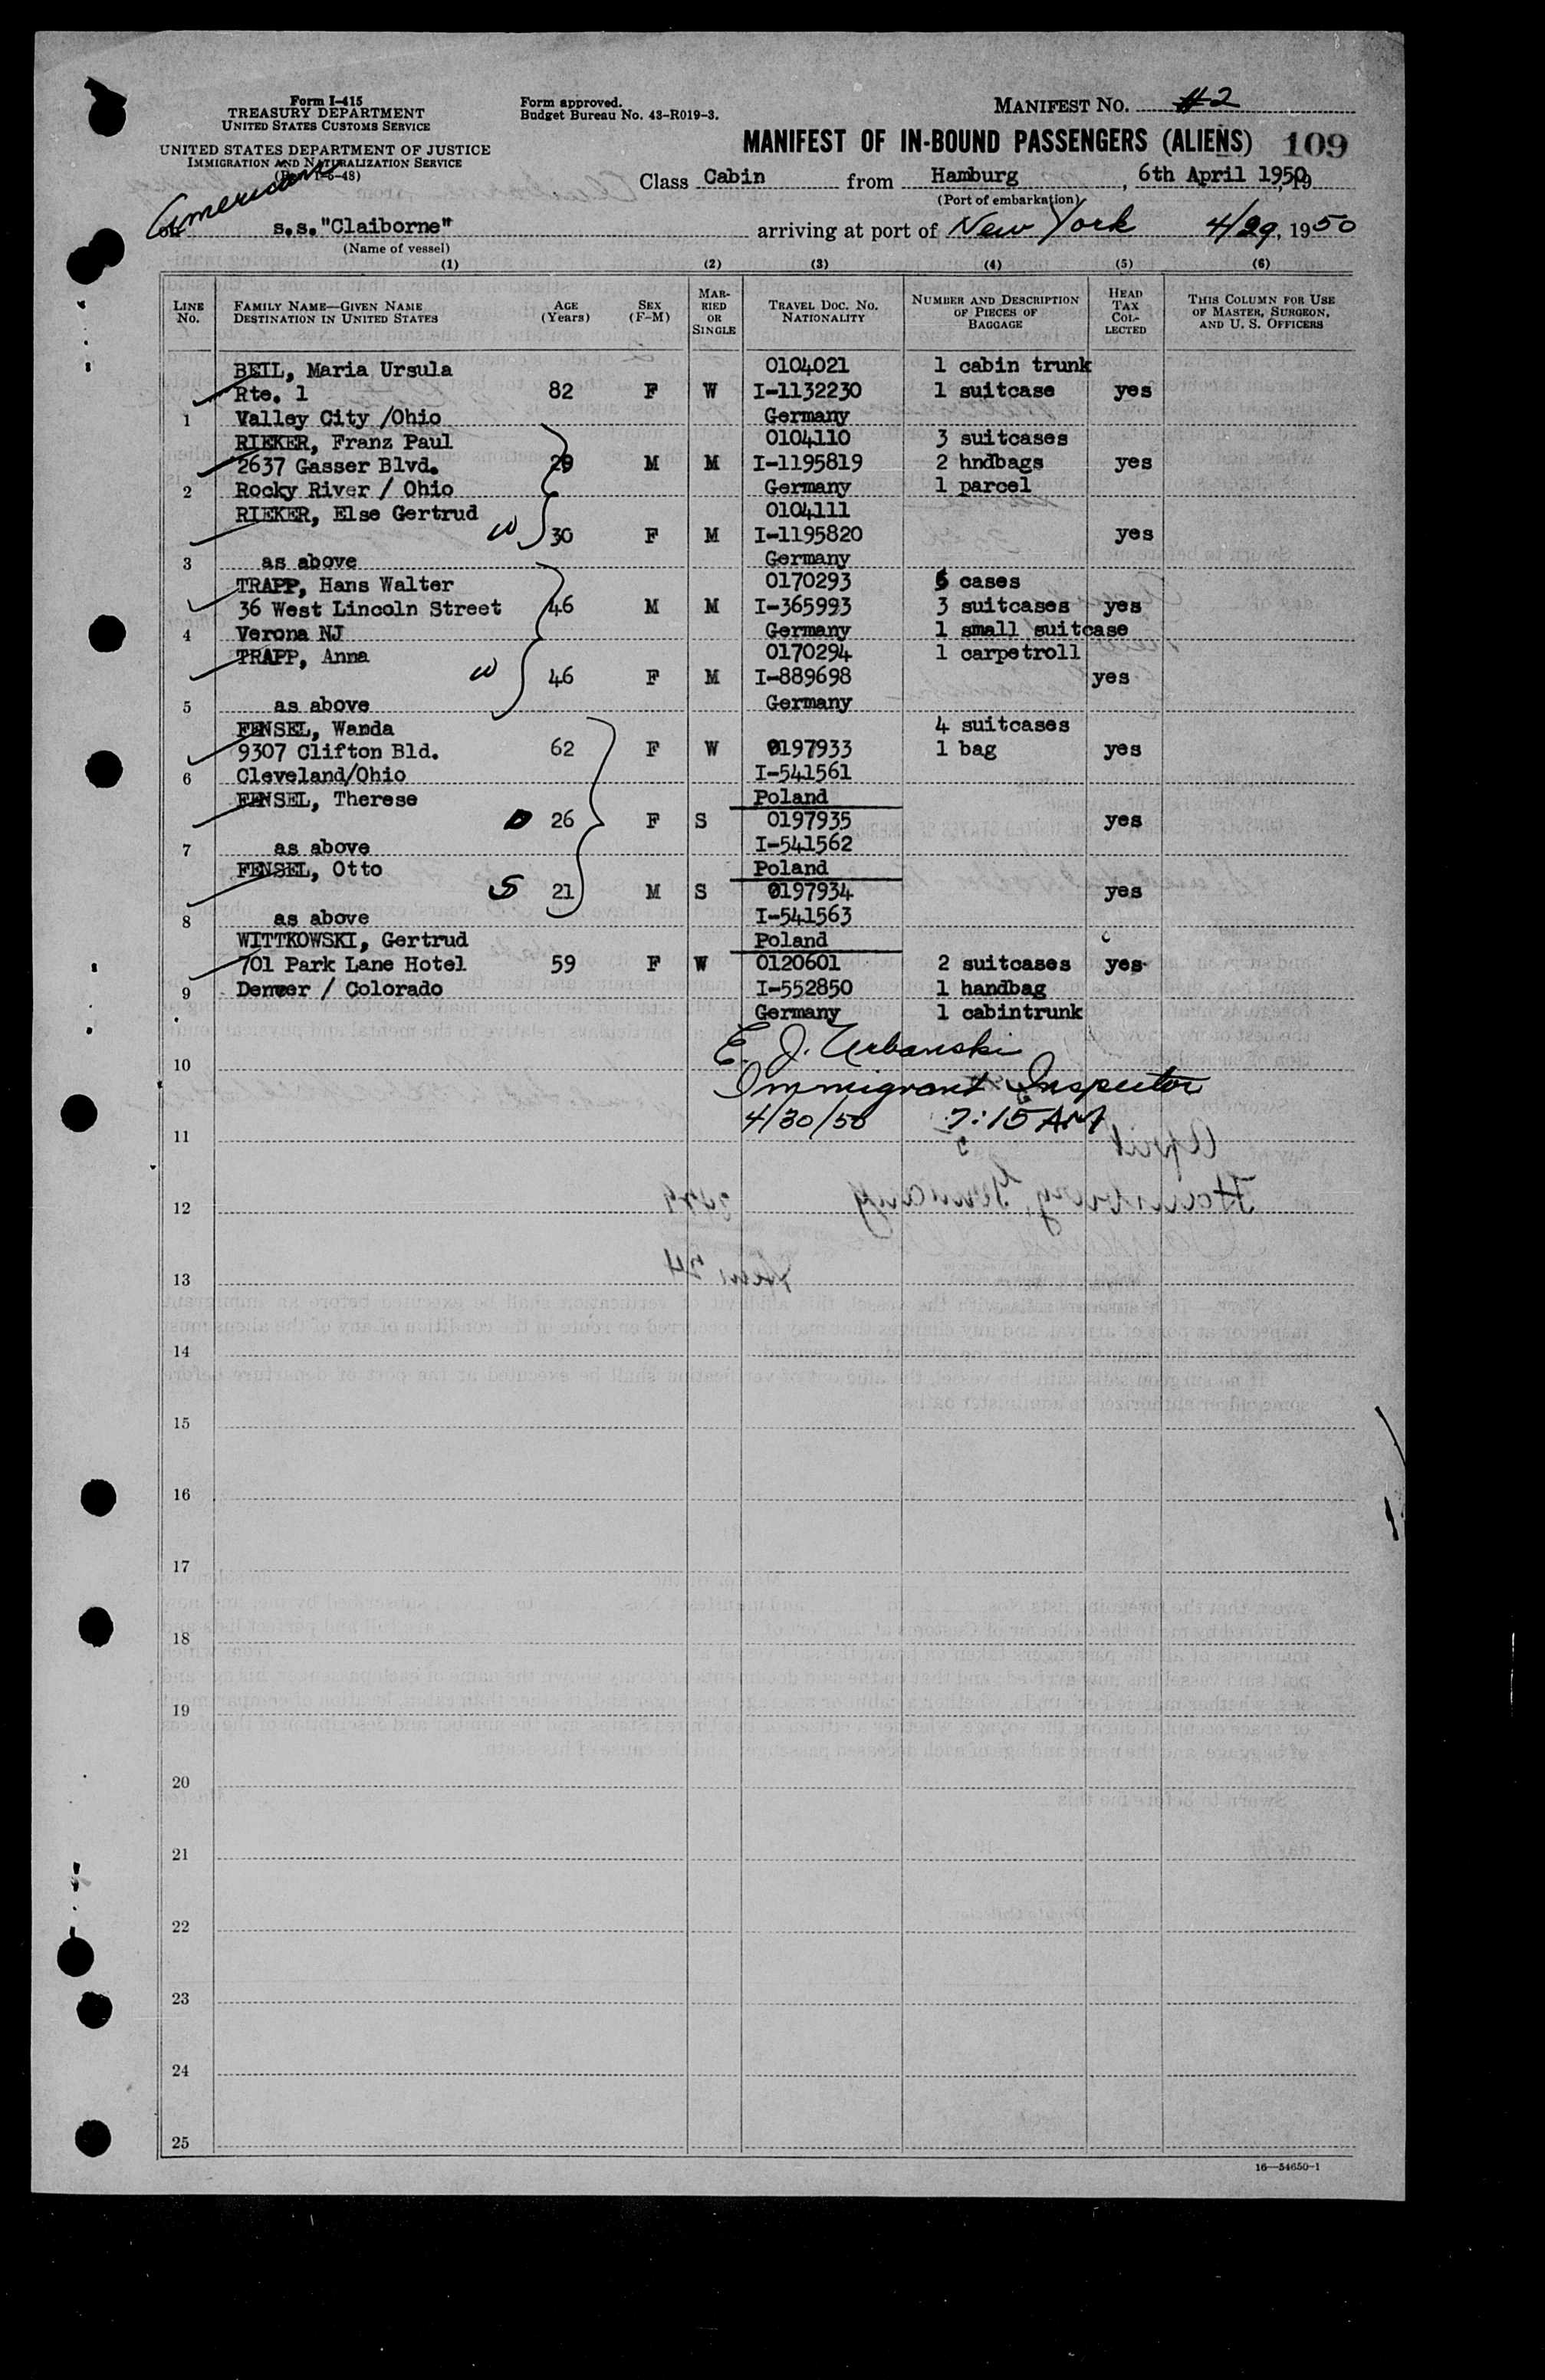 Form I-415
TREASURY DEPARTMENT
UNITED STATES CUSTOMS SERVICE
UNITED STATES DEPARTMENT OF JUSTICE
IMMIGRATION AND NATURALIZATION SERVICE
Form approved.
Budget Bureau No. 43-R019-3.
MANIFEST NO. #2
MANIFEST OF IN-BOUND PASSENGERS (ALIENS) 109
Class Cabin from Hamburg, 6th April 1950, 19
(Port of embarkation)
American
on s.s."Claiborne" arriving at port of New York 4/29, 1950
(Name of vessel)
(1) (2) (3) (4) (5) (6)
LINE No. FAMILY NAME—GIVEN NAME DESTINATION IN UNITED STATES AGE (Years) SEX (F-M) MARRIED OR SINGLE TRAVEL DOC. NO. NATIONALITY NUMBER AND DESCRIPTION OF PIECES OF BAGGAGE HEAD TAX COLLECTED THIS COLUMN FOR USE OF MASTER, SURGEON, AND U. S. OFFICERS
BEIL, Maria Ursula 0104021 1 cabin trunk
Rte. 1 82 F W I-1132230 1 suitcase yes
1 Valley City /Ohio Germany
RIEKER, Franz Paul 0104110 3 suitcases
2637 Gasser Blvd. 29 M M I-1195819 2 hndbags yes
2 Rocky River / Ohio Germany 1 parcel
RIEKER, Else Gertrud 0104111
W 30 F M I-1195820 yes
3 as above Germany
TRAPP, Hans Walter 0170293 5 cases
36 West Lincoln Street 46 M M I-365993 3 suitcases yes
4 Verona NJ Germany 1 small suitcase
TRAPP, Anna 0170294 1 carpetroll
W 46 F M I-889698 yes
5 as above Germany
FENSEL, Wanda 4 suitcases
9307 Clifton Bld. 62 F W 0197933 1 bag yes
6 Cleveland/Ohio I-541561
FENSEL, Therese Poland
D 26 F S 0197935 yes
7 as above I-541562
FENSEL, Otto Poland
S 21 M S 0197934 yes
8 as above I-541563
WITTKOWSKI, Gertrud Poland
701 Park Lane Hotel 59 F W 0120601 2 suitcases yes
9 Denver / Colorado I-552850 1 handbag
Germany 1 cabintrunk
E. J. Urbanski
10
Immigrant Inspector
4/30/50 7:15 AM
11
12
13
14
15
16
17
18
19
20
21
22
23
24
25
16—54650-1